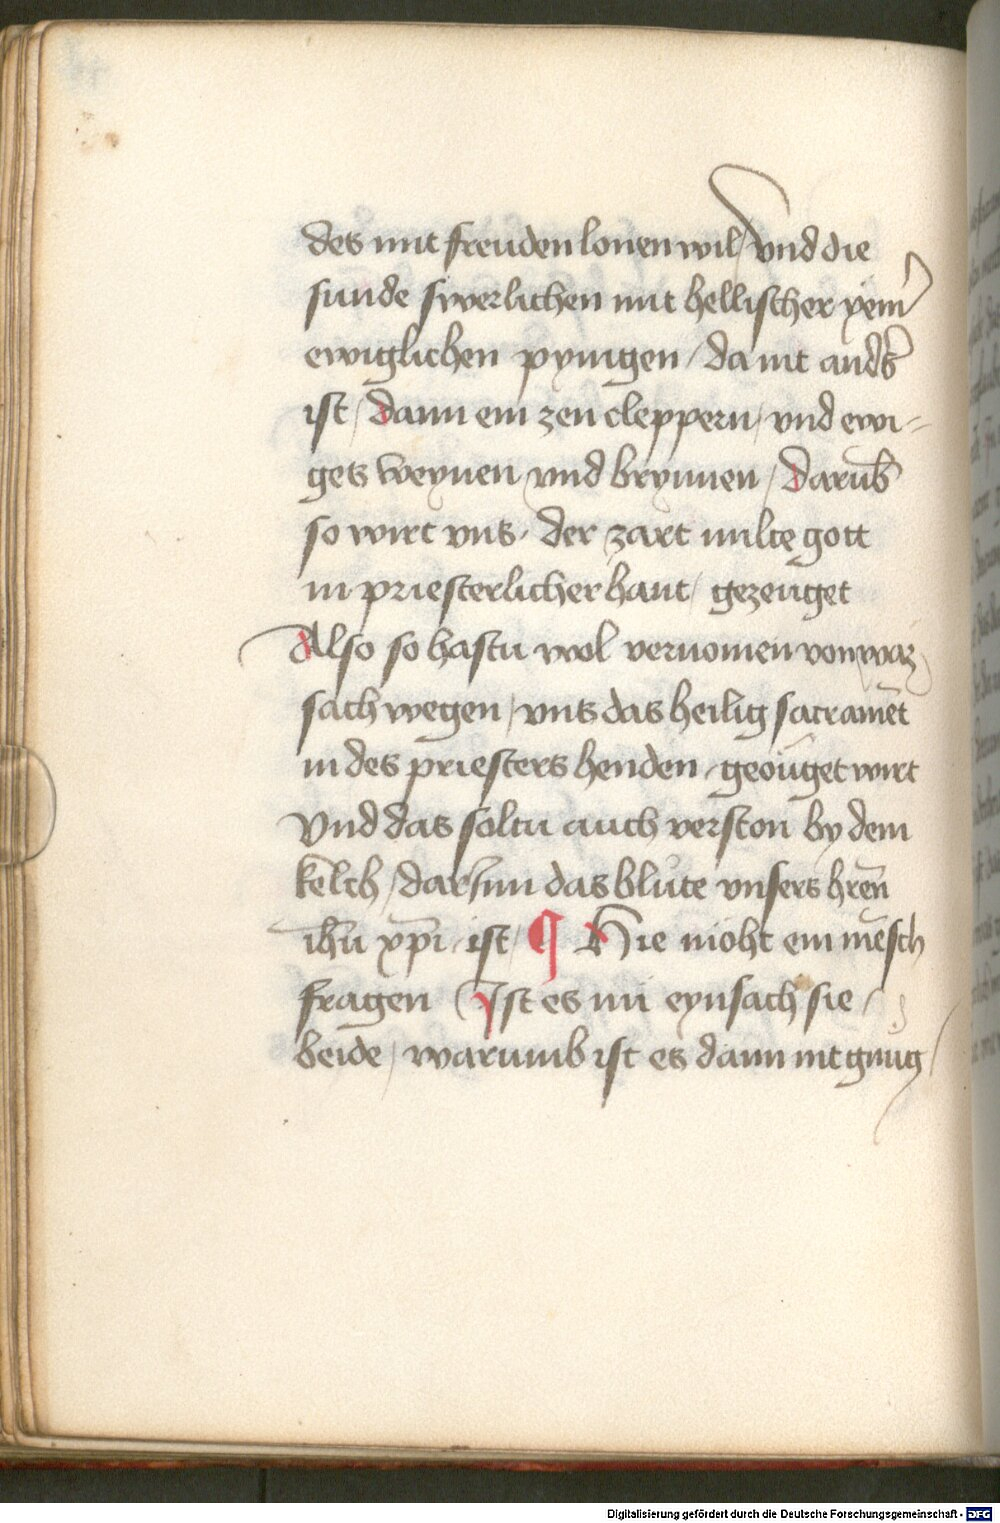 des mit freuden lonen wil / vnd die
sunde swerlichen mit hellischer pein
ewiglichen pynigen / da nit anders̄
ist / dann ein zen cleppern / vnd ewi-
ges weynen vnd brynnen / darūb
so wirt vns / der zart milte gott
in priesterlicher hant / gezeuget
Also so hastu wol vernomen von waz
sach wegen / vns das heilig sacramēt
in des priesters henden / geöuget wirt
Vnd das soltu auch verston by dem
kelch / darinn das blůte vnsers hrēn
ihū xp̄i ist / ¶ Hie moht ein mēsch
fragen / Ist es nū eyn sach sie /
beide / warumb ist es dann nit gnug /
Digitalisierung gefördert durch die Deutsche Forschungsgemeinschaft - DFG